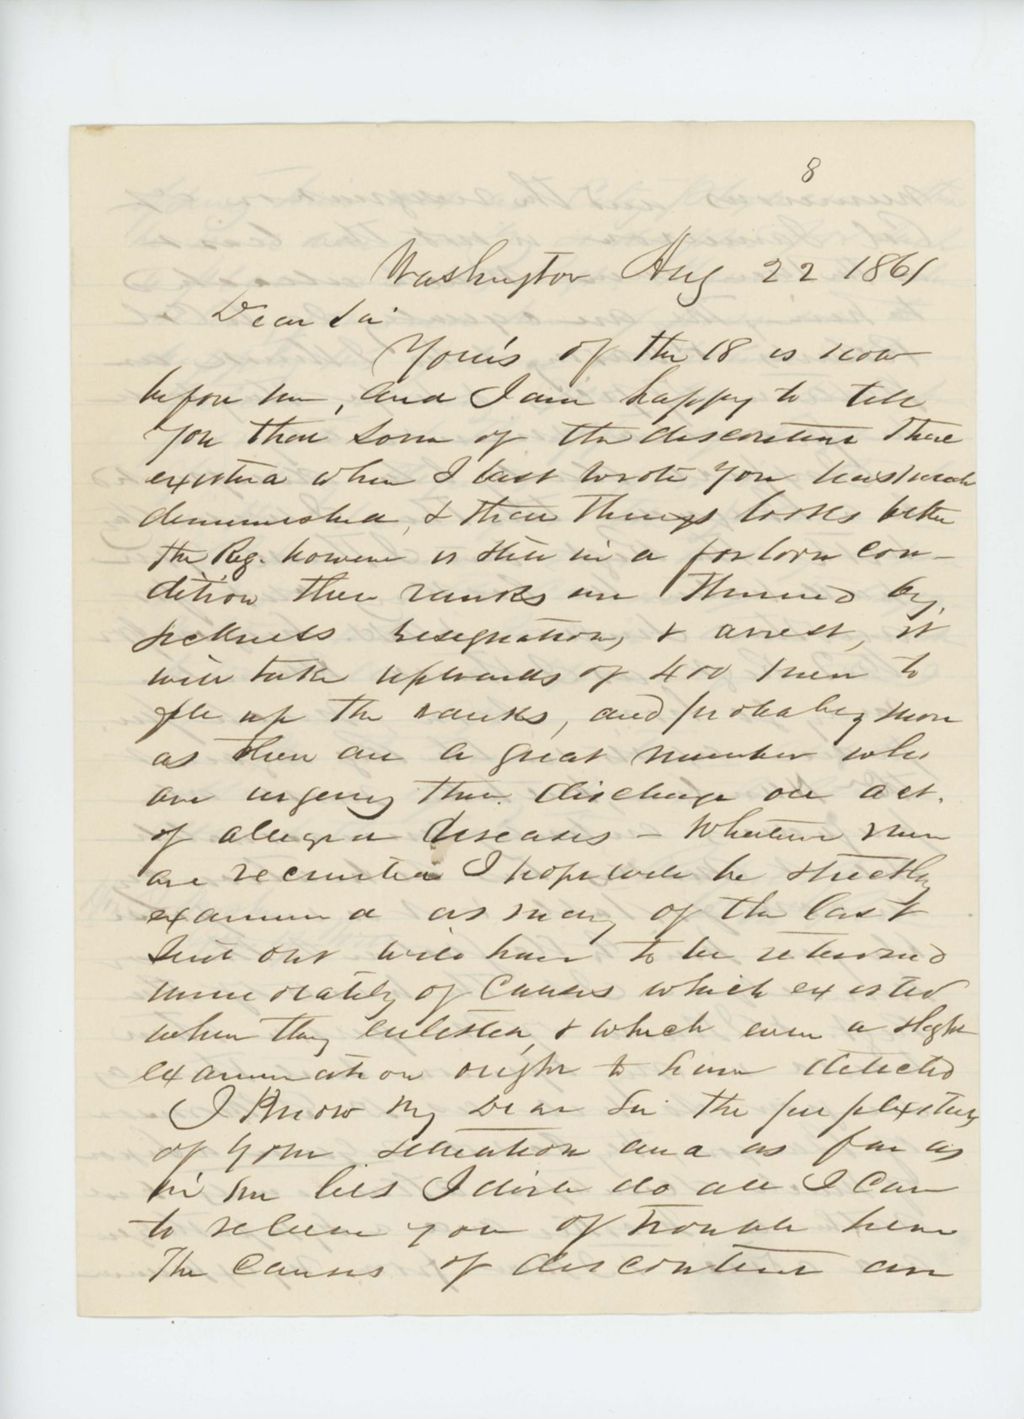 8
Washington Aug 22 1861
Dear Sir
Your's of the 18 is now
before me, and I am happy to tell
you that some of the discontent that
existed when I last wrote you has much
diminished, & that things looks better
the Reg. however is still in a forlorn con-
dition their ranks are thinned by
sickness resignation, & arrest, it
will take upwards of 400 men to
fill up the ranks, and probably more
as there are a great number who
are urgeing their discharge on act.
of alleged diseases - Whatever men
are recruited I hope will be strictly
examined as many of the last
sent out will have to be returned
immediately of causes which existed
when they enlisted, & which even a slight
examination ought to have detected
I Know my Dear Sir the perplexity
of your situation and as far as
in me lies I will do all I can
to relieve you of trouble here
The causes of discontent are